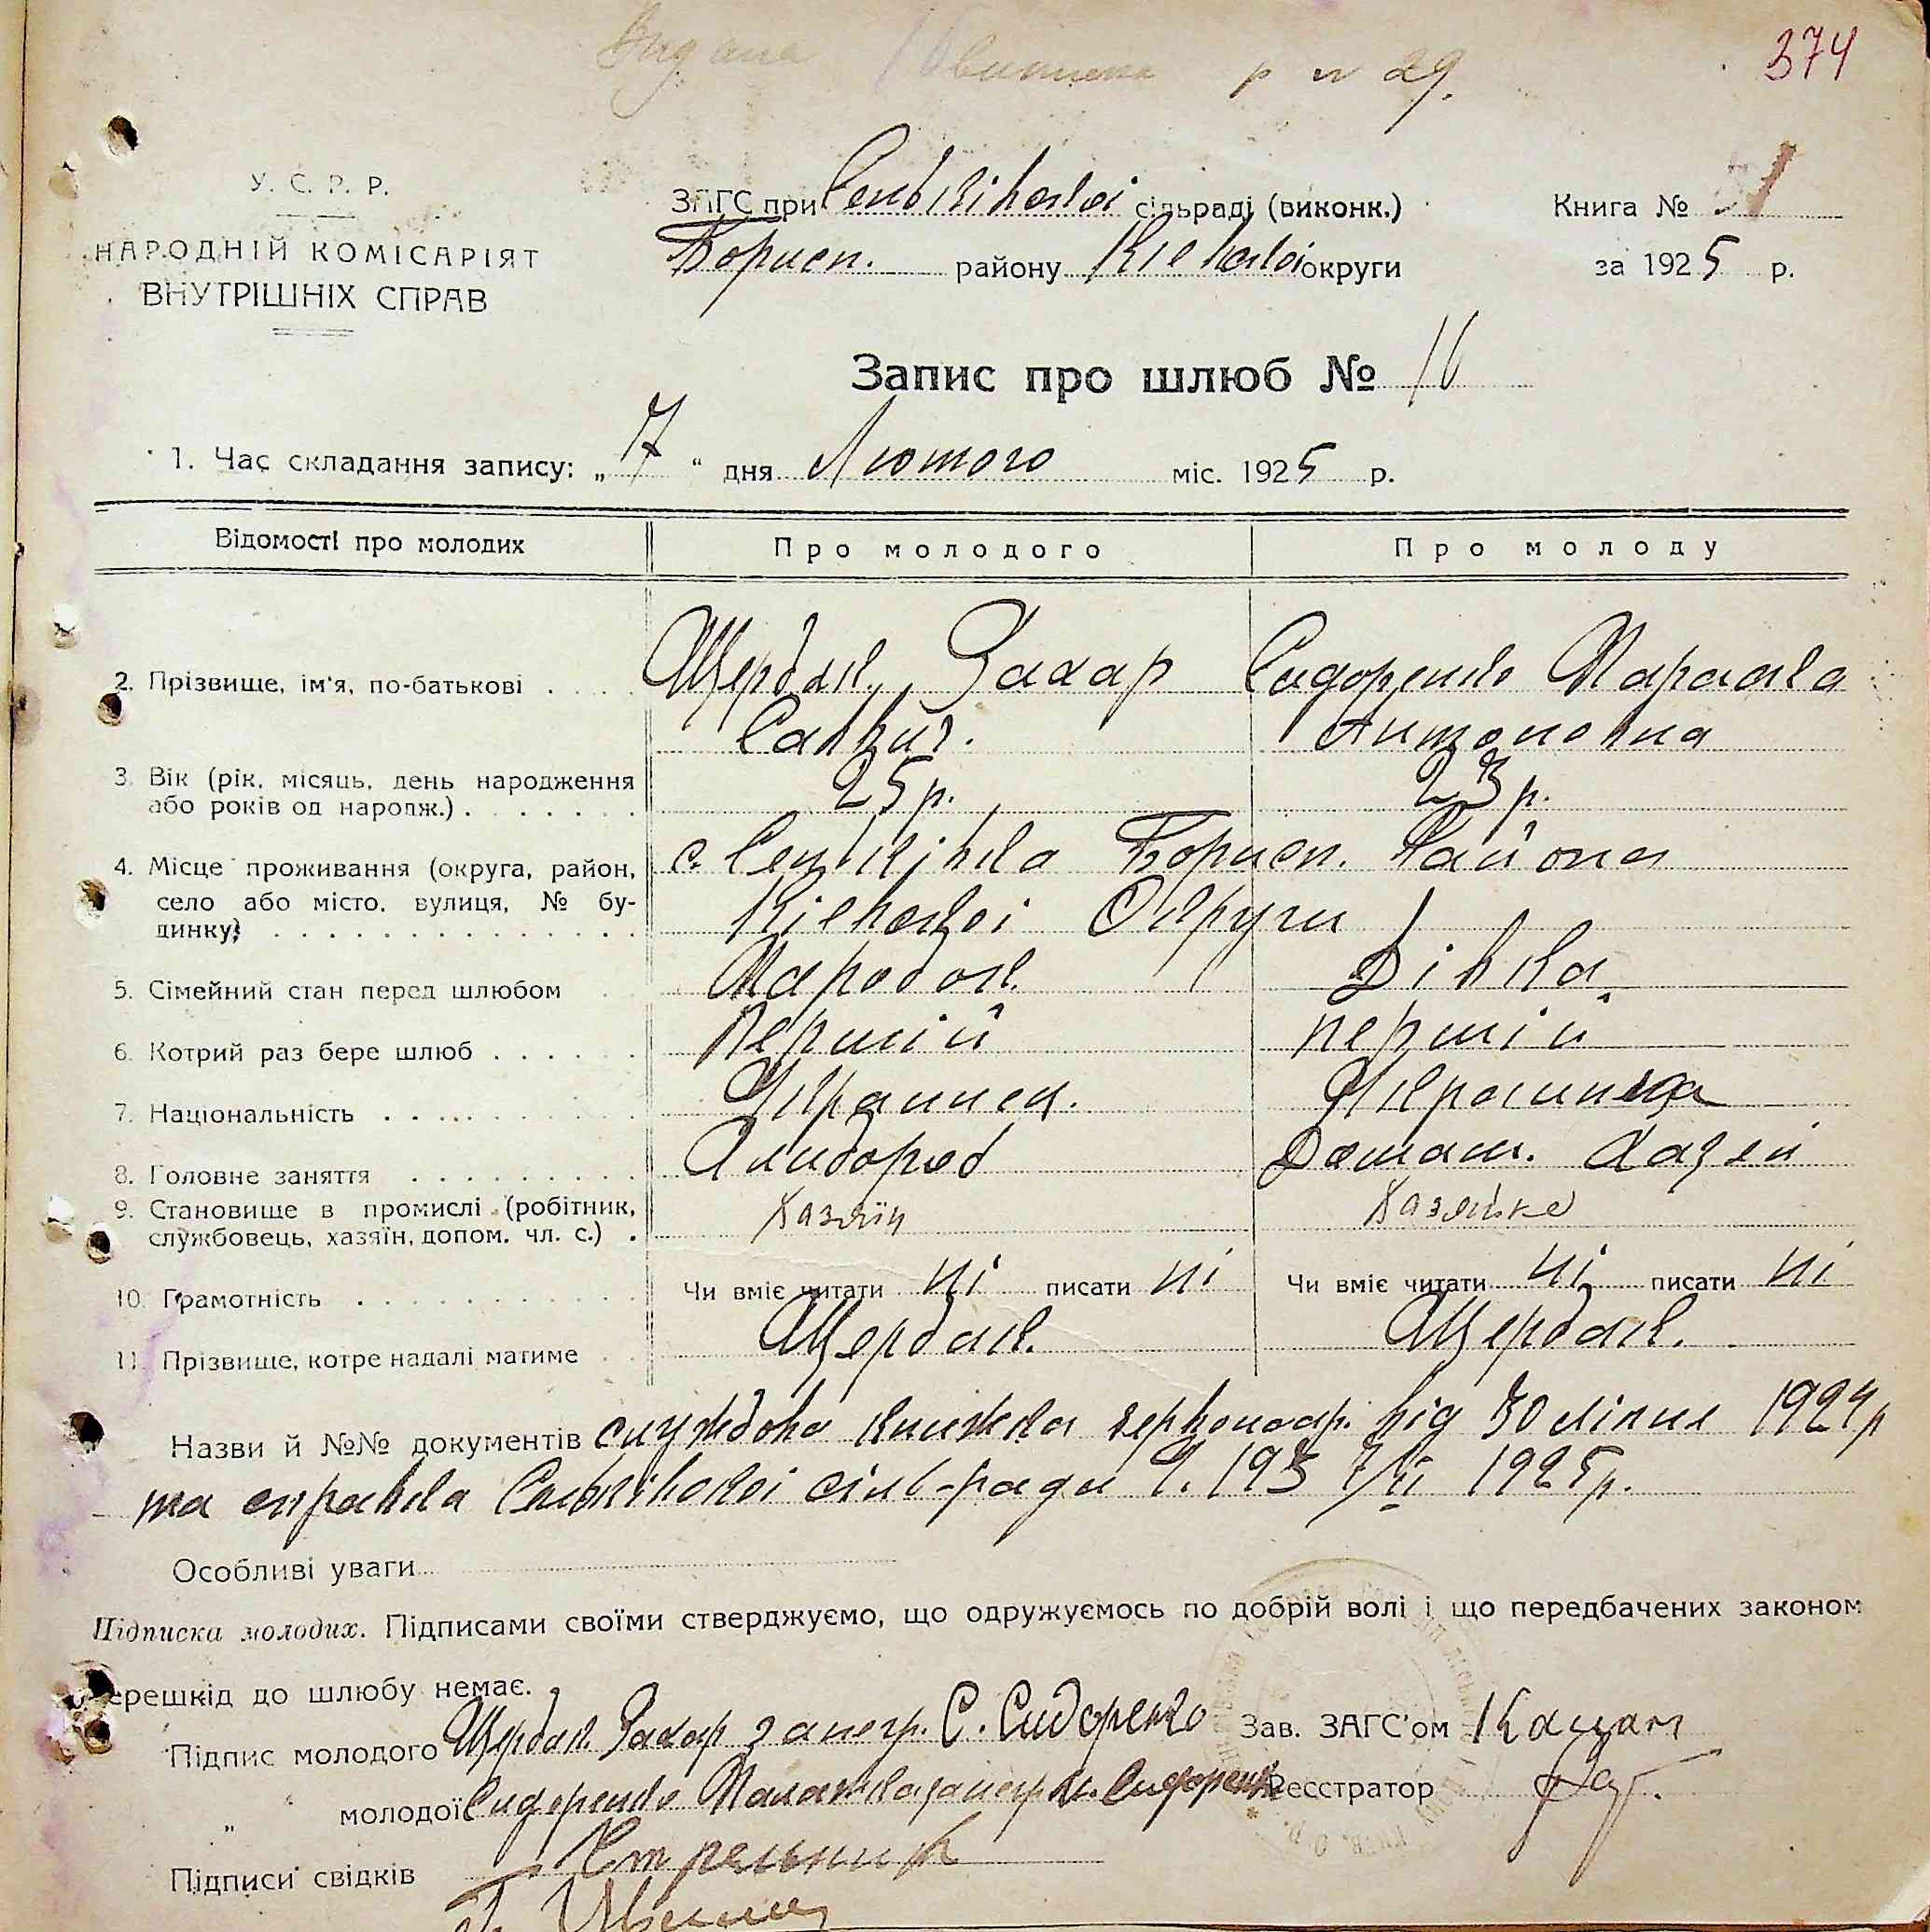 Видана виписка р н 29.
374
У. С. Р. Р.
НАРОДНІЙ КОМІСАРІЯТ
ВНУТРІШНІХ СПРАВ
ЗАГС при Сеньківської сільраді (виконк.)
Борисп. району Київської округи
Книга № 1
за 1925 р.
Запис про шлюб № 16
1. Час складання запису: „7“ дня Лютого міс. 1925 р.
Відомості про молодих Про молодого Про молоду
2. Прізвище, ім'я, по-батькові . . . . Щербак Захар Сидоренко Параска
Савкич. Антоновна
3. Вік (рік, місяць, день народження 25 р. 23 р.
або років од народж.) . . . . . . .
4. Місце проживання (округа, район, с. Сеньківка Борисп. Району
село або місто, вулиця, № бу- Київської Округи
динку) . . . . . . . . . . . . . .
5. Сімейний стан перед шлюбом Паробок. Дівка.
6. Котрий раз бере шлюб . . . . . Першій першій
7. Національність . . . . . . . . . Українец. Українка
8. Головне заняття . . . . . . . . . Хлибороб Домаш. Хазяй
9. Становище в промислі (робітник, Хазяїн Хазяйка
службовець, хазяїн, допом. чл. с.) .
10. Грамотність . . . . . . . . . . . Чи вміє читати ні писати ні Чи вміє читати ні писати ні
11. Прізвище, котре надалі матиме Щербак. Щербак.
Назви й №№ документів службова книжка червоноар. від 30 липня 1924 р
та справка Сеньківської сіль-ради Ч. 193 7/II 1925 р.
Особливі уваги
Підписка молодих. Підписами своїми стверджуємо, що одружуємось по добрій волі і що передбачених законом
перешкід до шлюбу немає.
Підпис молодого Щербак Захар за негр. С. Сидоренко Зав. ЗАГС'ом Кацан
„ молодої Сидоренко за негр. Сидоренко Реєстратор
Підписи свідків Стрельник